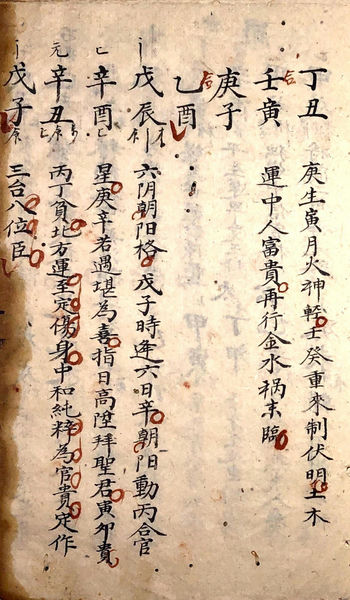 丁丑 庚生寅月火神輕壬癸重來制伏明土木
壬寅 運中人富貴再行金水禍來臨
庚子
乙酉
戊辰 六阴朝阳格戊子時逢六日辛朝阳動丙合官
辛酉 星庚辛若遇堪為喜指日高陞拜聖君寅夘貴
辛丑 丙丁貧北方運至定傷身中和純粹為官貴定作
戊子 三台八位臣